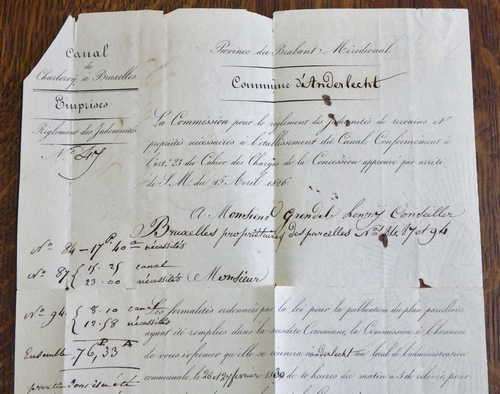 Canal
de
Charleroy à Bruxelles
Emprises
Règlement des Indemnités
N° 47
Province du Brabant Méridional
Commune d'Anderlecht
La Commission pour le règlement des Indemnités de terrains
propriétés nécessaires à l'établissement du Canal Conformément à
l'art. 23 du Cahier des Charges de la Concession approuvé par arrêté
de S. M. du 15 Avril 1826
A Monsieur Conseiller
Bruxelles propriétaire des parcelles N° 84 87 et 94
N° 84 - 17 40 nécessités
N° 87 { 15. 25 canal
23. 00 nécessités
Monsieur
N° 94 { 8. 10 canal
12. 58 nécessités
Ensemble 76, 33
Les formalités ordonnées par la loi pour la publication du plan parcellaire
ayant été remplies dans la susdite Commune, la Commission à l'honneur
de vous informer qu'elle se réunira à Anderlecht au local de l'administration
communale le février 1830 de 10 heures du matin à 3 de relevée pour